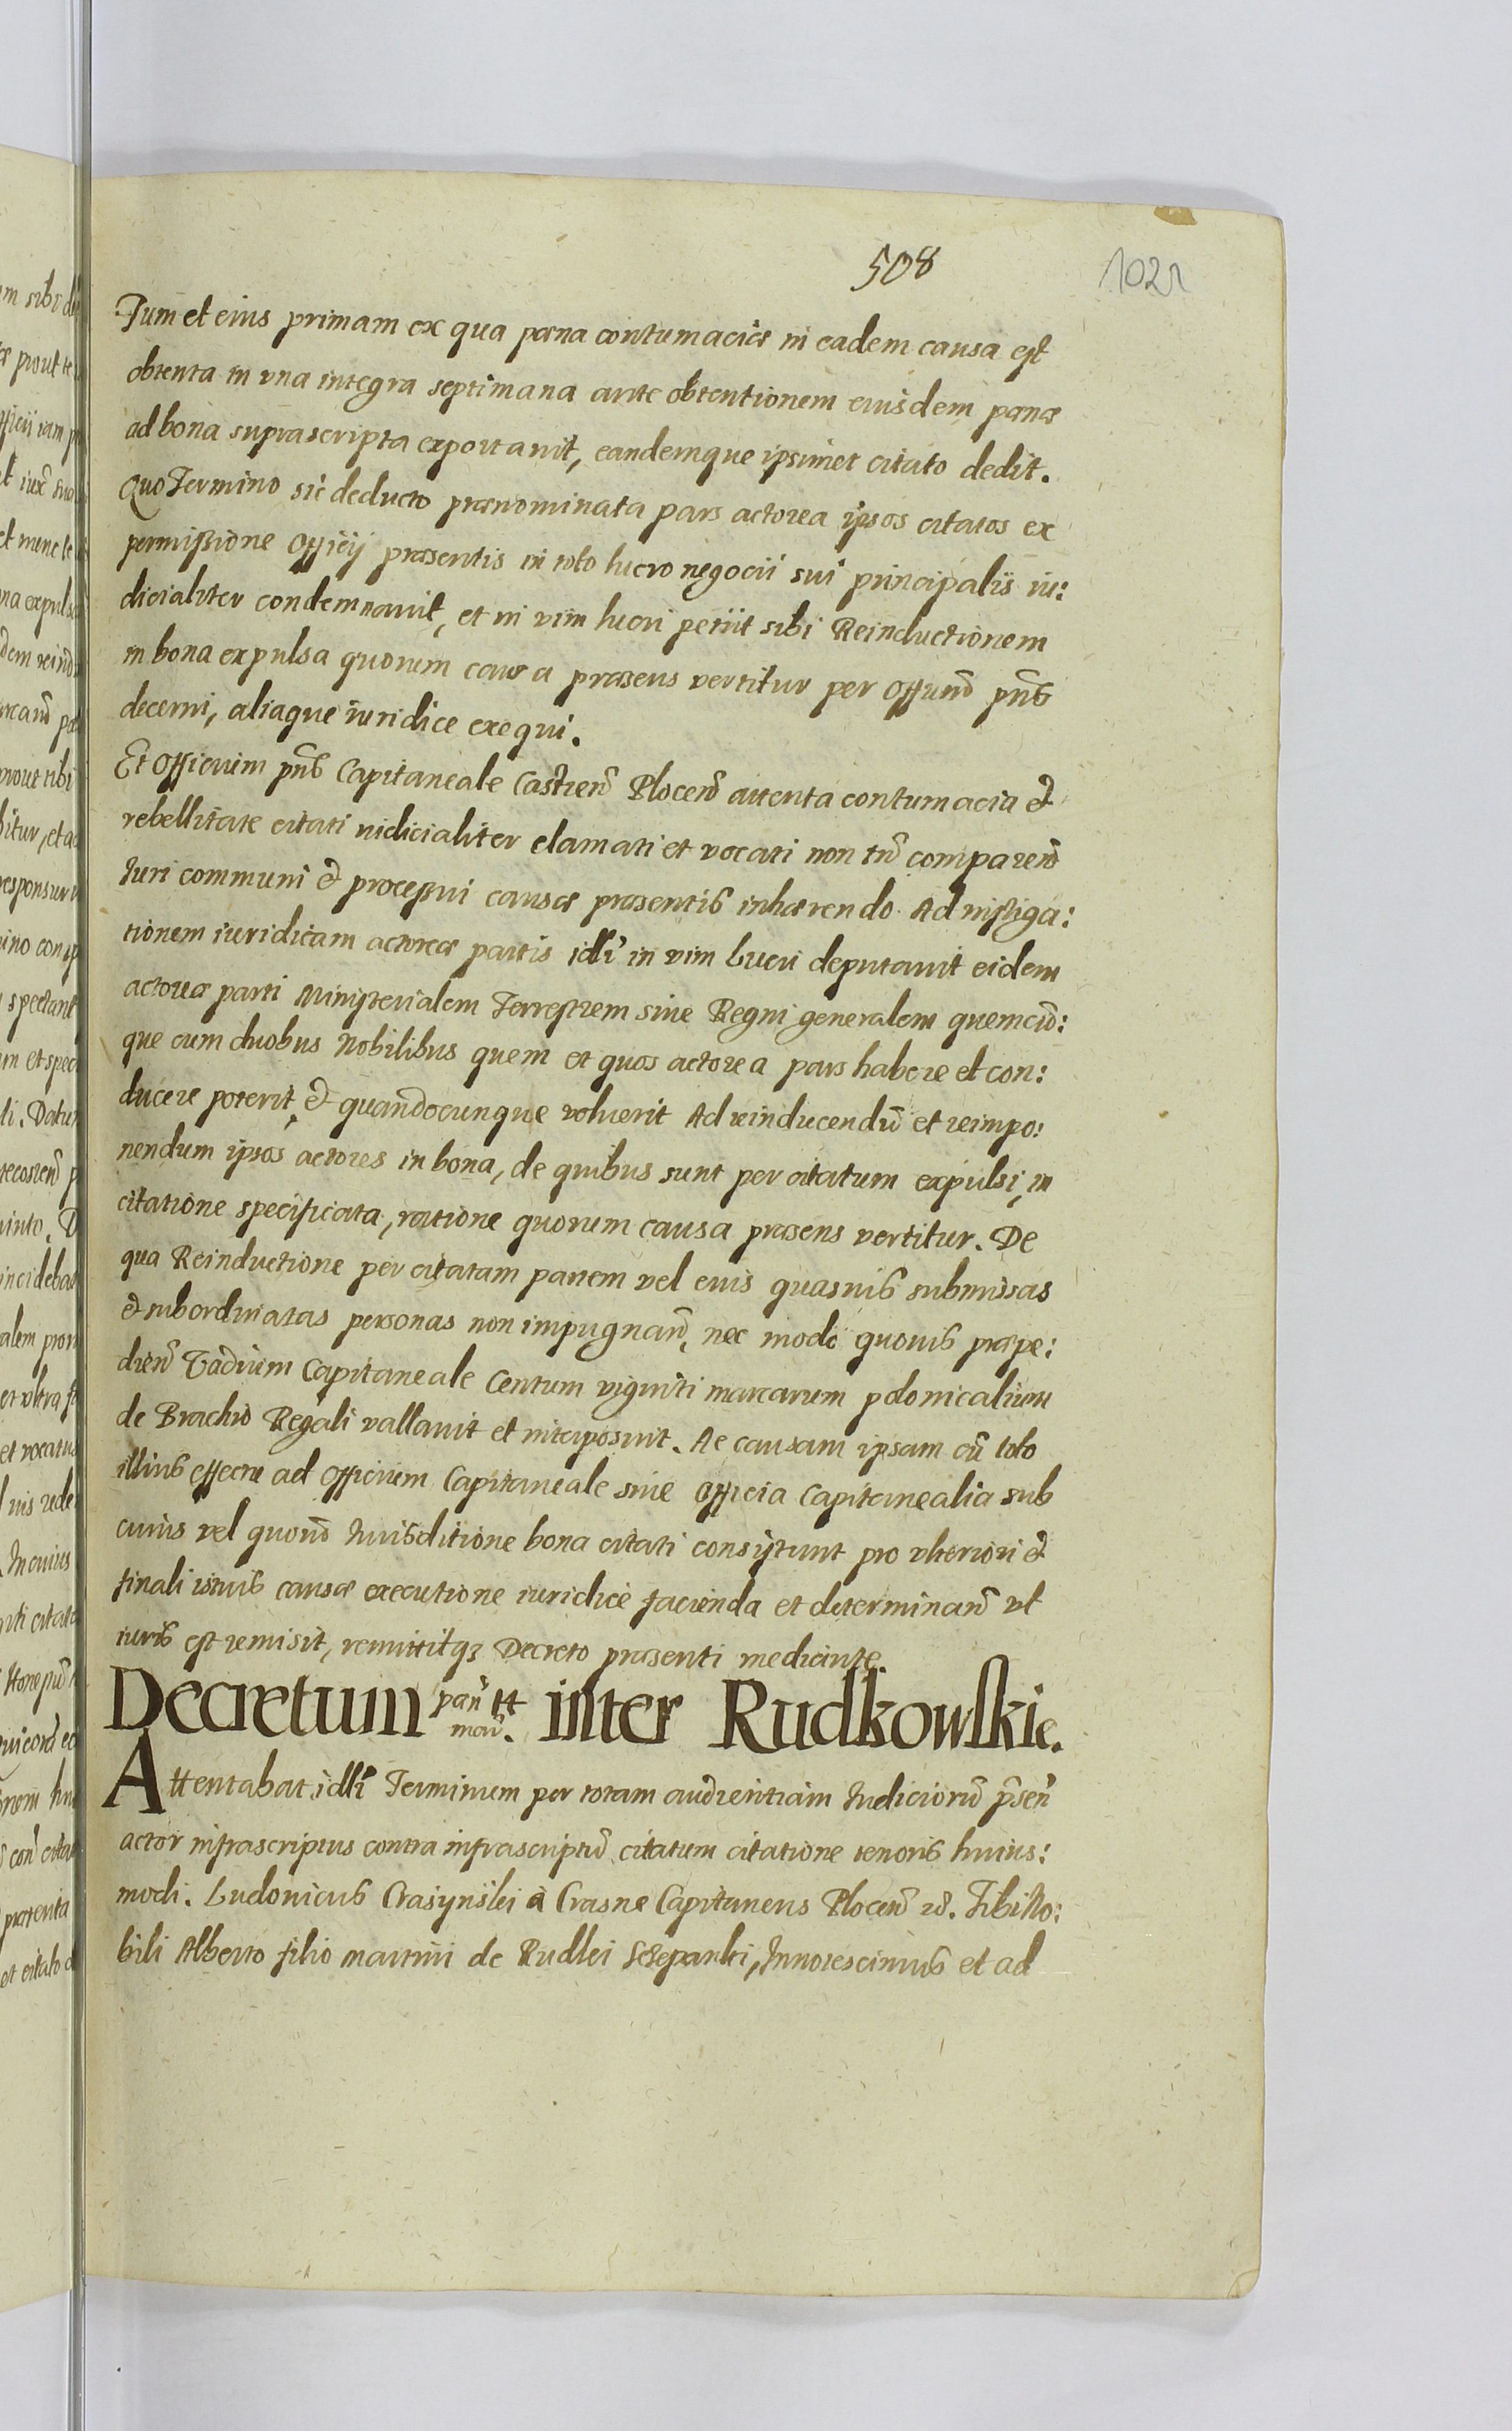 508
1021
Tum et eius primam ex qua pæna contumaciæ in eadem causa est
obtenta in vna integra septimana ante obtentionem eiusdem pænæ
ad bona suprascripta exportavit, eandemque ipsimet citato dedit.
Quo Termino sic deducto prænominata pars actorea ipsos citatos ex
permissione Officij præsentis in toto lucro negocii sui principaliis iu:
dicialiter condemnavit, et in vim lucri petiit sibi Reinductionem
in bona expulsa quorum causa præsens vertitur per Offium̃ pñs
decerni, aliaque iuridice exequi.
Et Officium pñs Capitaneale Castreñ Ploceñ attenta contumacia et
rebellitate citati iudicialiter clamati et vocati non tñ compareñ
Iuri communi et processui causæ præsentis inhærendo. Ad instiga:
tionem iuridicam actoreæ partis idẽ in vim lucri deputavit eidem
actoreæ parti Ministerialem Terrestrem siue Regni generalem quemcũ:
que cum duobus Nobilibus quem et quos actorea pars habere et con:
ducere poterit, et quandocunque voluerit Ad reinducendũ et reimpo:
nendum ipsos actores in bona, de quibus sunt per citatum expulsi, in
citatione specificata, ratione quorum causa præsens vertitur. De
qua Reinductione per citatam partem vel euis quasuis submissas
et subordinatas personas non impugnañ, nec modo quouis præpe:
dieñ Vadium Capitaneale Centum viginti marcarum polonicalium
de Brachio Regali vallauit et interposuit. Ac causam ipsam cũ toto
illius effectu ad Officium Capitaneale siue Officia Capitanealia sub
cuius vel quorũ Iurisditione bona citati consistunt pro vlteriori et
finali istius causæ executione iuridice facienda et determinañ vt
iuris est remisit, remittitq3 Decreto præsenti mediante.
Decretum pañ tt mañ. inter Rudkowskie.
Attentabat idẽ Terminum per totam audientiam Iudiciorũ p̃señ
actor infrascriptus contra infrascriptũ citatum citatione tenoris huius:
modi. Ludouicus Crasynski à Crasne Capitaneus Ploceñ &. Tibi No:
bili Alberto filio martini de Rudki Sczepanki, Innotescimus et ad